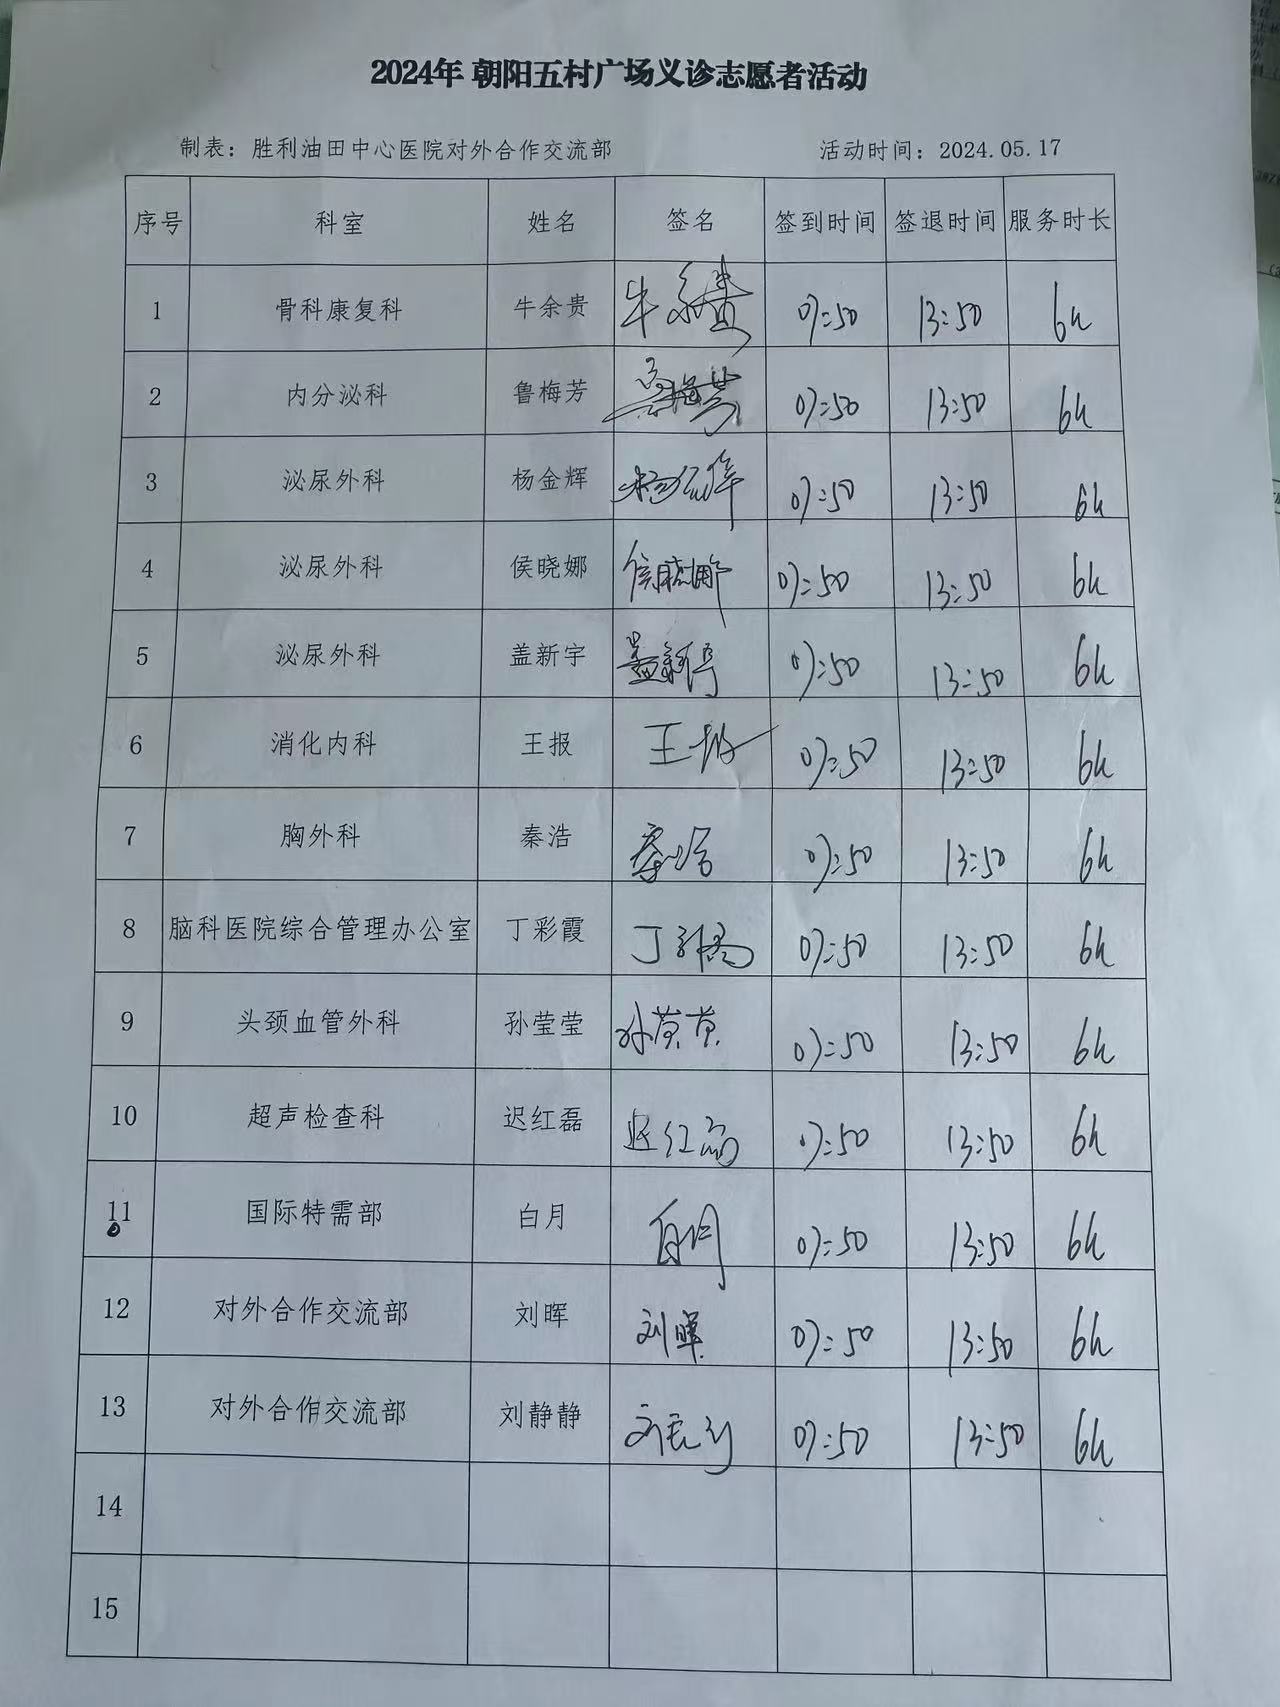 2024年 朝阳五村广场义诊志愿者活动
制表：胜利油田中心医院对外合作交流部 活动时间：2024.05.17
序号 科室 姓名 签名 签到时间 签退时间 服务时长
1 骨科康复科 牛余贵 牛余贵 07:50 13:50 6h
2 内分泌科 鲁梅芳 鲁梅芳 07:50 13:50 6h
3 泌尿外科 杨金辉 杨金辉 07:50 13:50 6h
4 泌尿外科 侯晓娜 侯晓娜 07:50 13:50 6h
5 泌尿外科 盖新宇 盖新宇 07:50 13:50 6h
6 消化内科 王报 王报 07:50 13:50 6h
7 胸外科 秦浩 秦浩 07:50 13:50 6h
8 脑科医院综合管理办公室 丁彩霞 丁彩霞 07:50 13:50 6h
9 头颈血管外科 孙莹莹 孙莹莹 07:50 13:50 6h
10 超声检查科 迟红磊 迟红磊 07:50 13:50 6h
11 国际特需部 白月 白月 07:50 13:50 6h
12 对外合作交流部 刘晖 刘晖 07:50 13:50 6h
13 对外合作交流部 刘静静 刘静静 07:50 13:50 6h
14
15